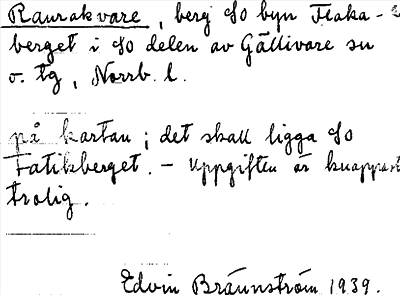 Raurakvare, berg SO byn Flaka-
berget i SO delen av Gällivare sn
o. tg, Norrb. l.
på kartan; det skall ligga SO
Fatikberget. – Uppgiften är knappast
trolig.
Edvin Brännström 1939.